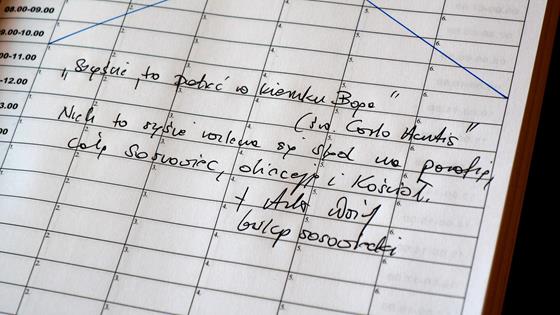 08.00-09.00
.00-10.00
00-11.00
-12.00
3.00
„Szczęście, to patrzeć w kierunku Boga”
(św. Carlo Acutis"
Niech to szczęście rozlewa się stąd na parafię,
cały Sosnowiec, diecezję i Kościół.
+ Artur Ważny
biskup sosnowiecki